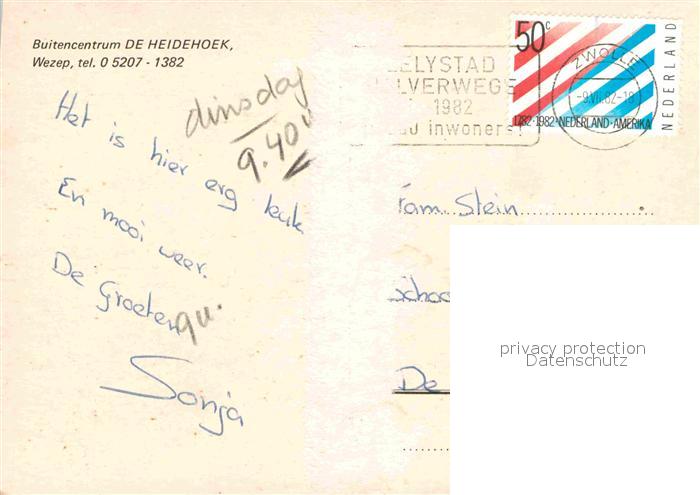 Buitencentrum DE HEIDEHOEK,
Wezep, tel. 0 5207 - 1382
dinsdag
9.40u
Het is hier erg leuk
En mooi weer.
De Groeten
9u.
Sonja
ELYSTAD
LVERWEGE
1982
inwoners!
50c
NEDERLAND
1782·1982·NEDERLAND-AMERIKA
ZWOLLE
-9.VII.82-18
Fam. Stein
schoo
De
privacy protection
Datenschutz